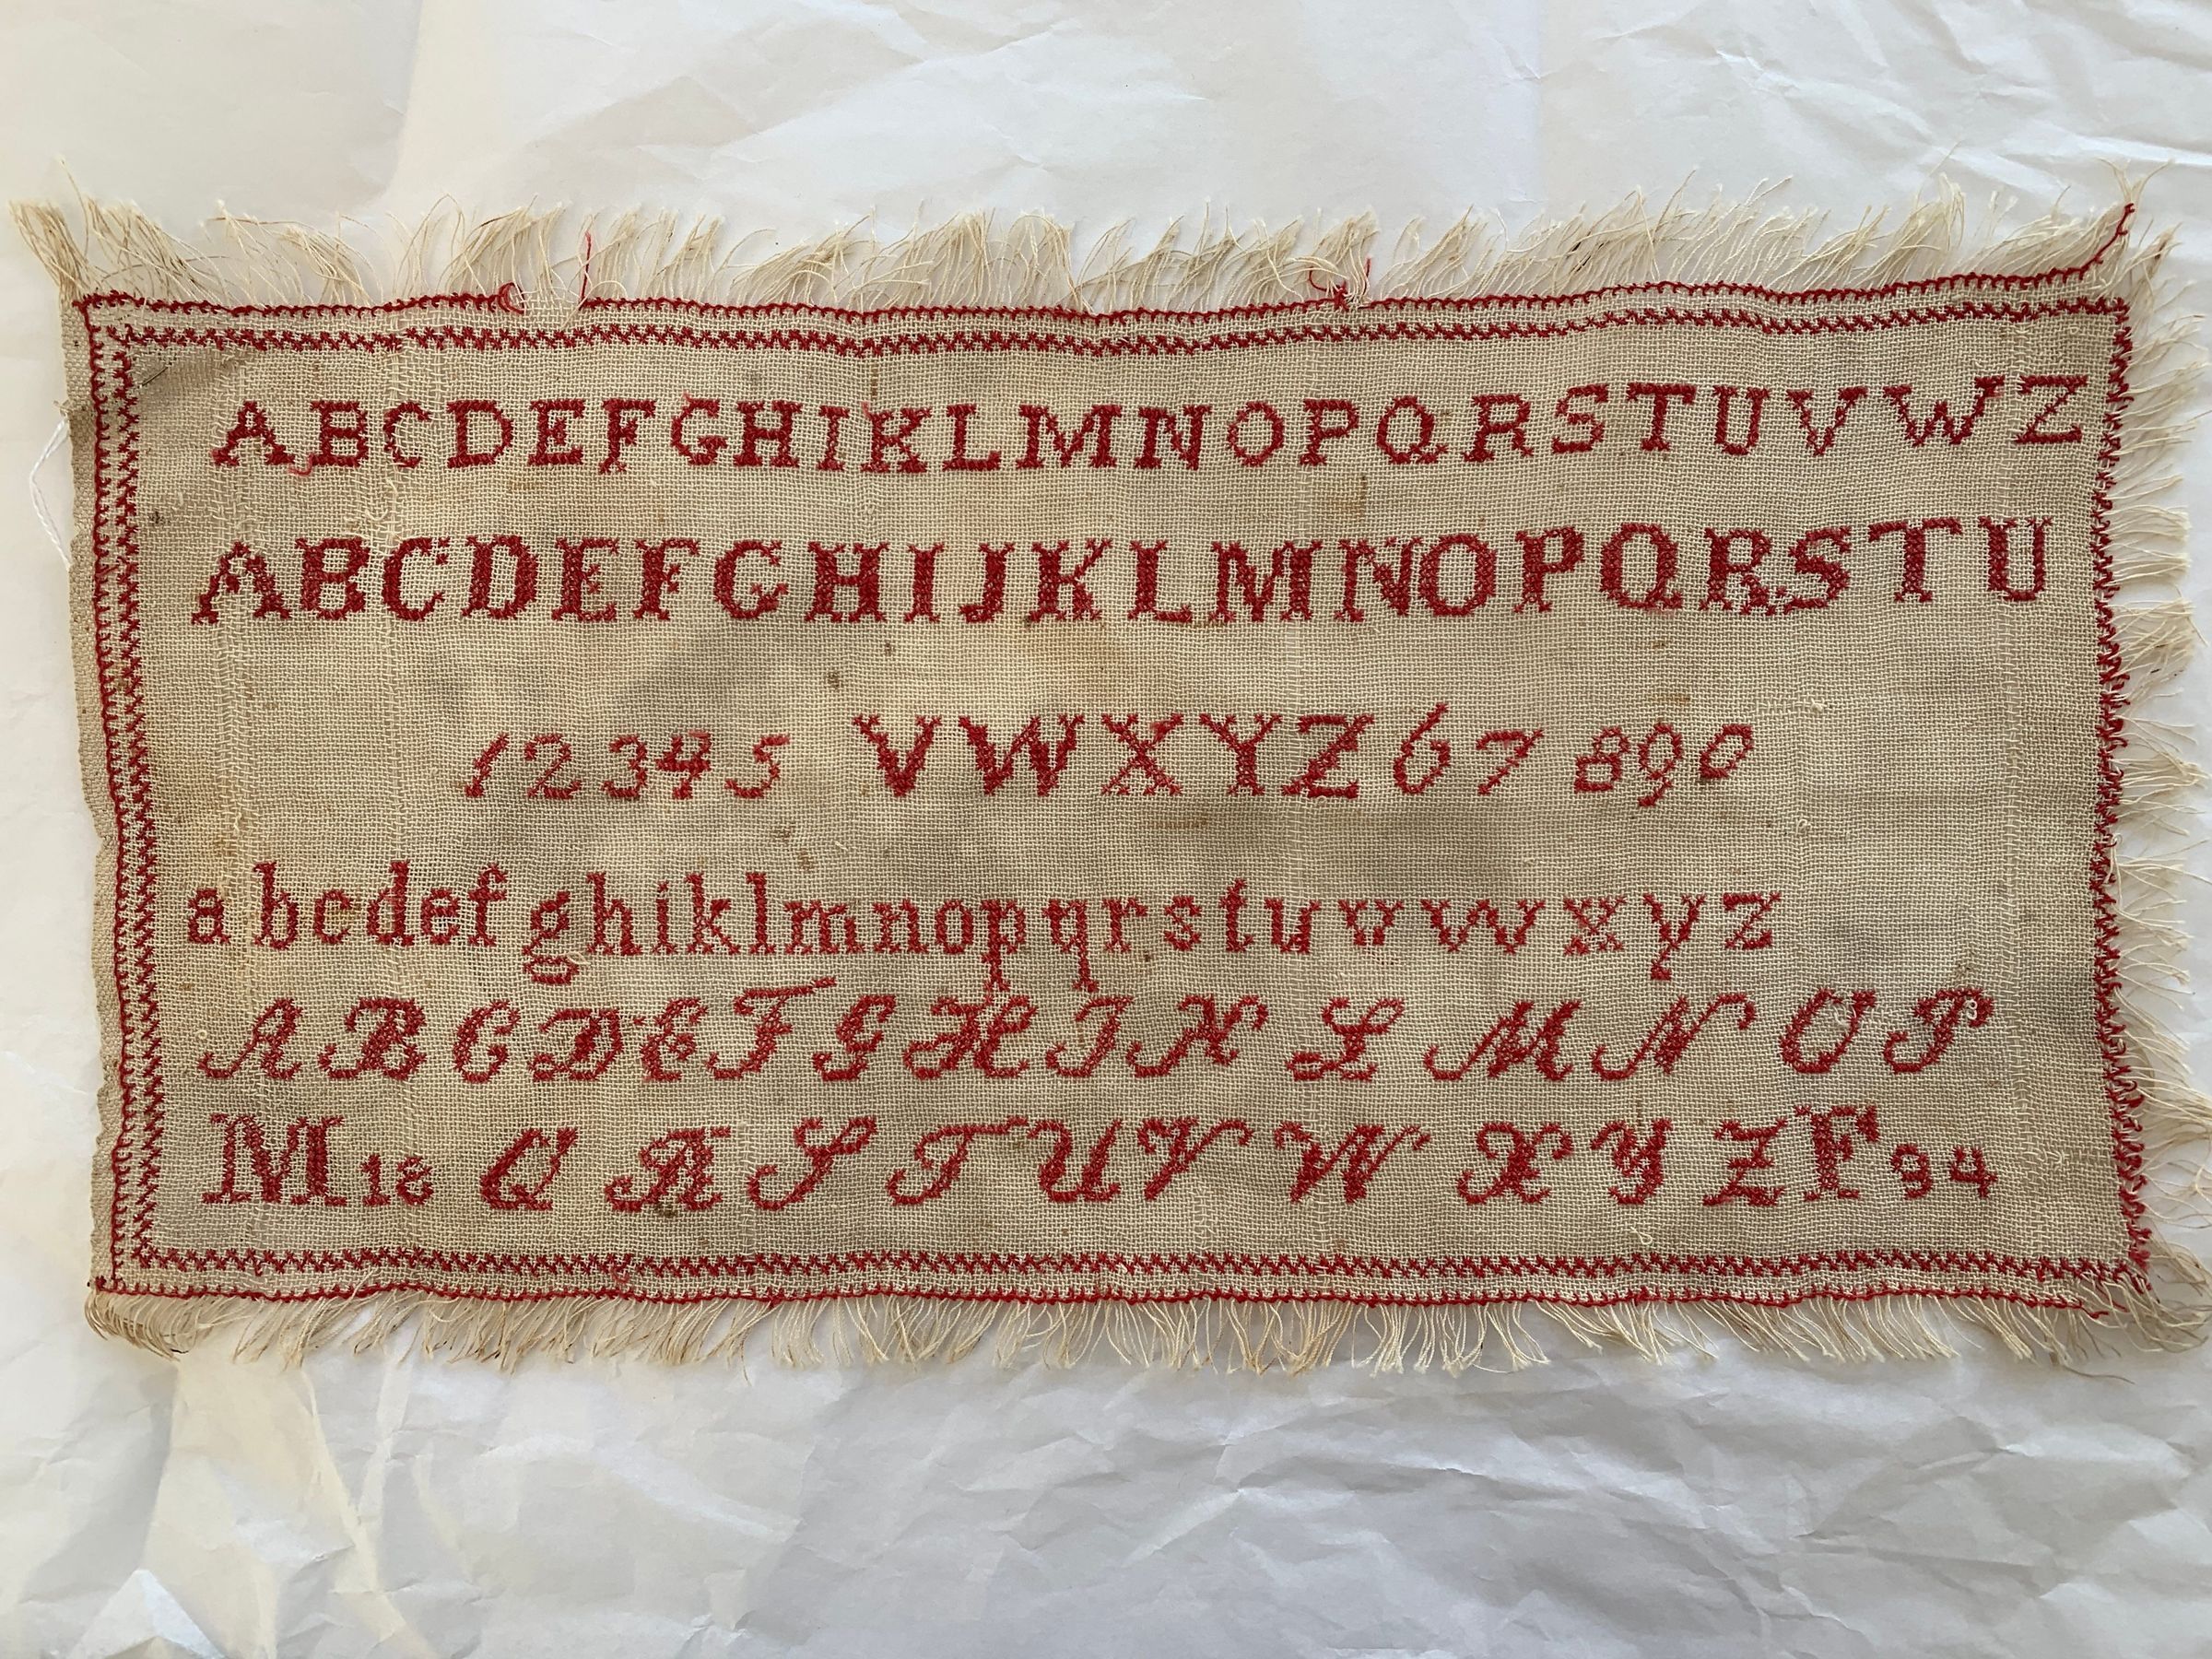 ABCDEFGHIKLMNOPQRSTUVWZ
ABCDEFGHIJKLMNOPQRSTU
12345 VWXYZ 67 890
abcdefghiklmnopqrstuvwxyz
ABCDEFGHIKLMNOP
M 18 QRSTUVWXYZ F 94